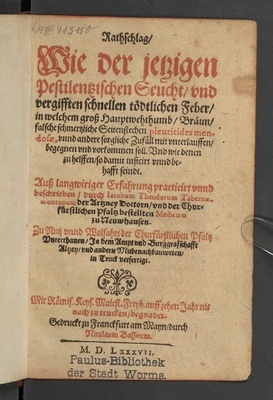 Rathschlag/
Wie der jetzigen
Pestilentzischen Seucht/ vnd
vergifften schnellen tödtlichen Feber/
in welchem groß Hauptwehthumb/ Bräun/
falsche schmertzliche Seitenstechen pleuritides men-
dosæ, vnnd andere sorgliche Zufäll mit vnterlauffen/
begegnen vnd vorkommen soll. Vnd wie denen
zu helffen/ so damit inficirt vnnd be-
hafft seindt.
Auß langwiriger Erfahrung practicirt vnnd
beschrieben / durch Iacobum Theodorum Tabernæ-
montanum der Artzney Doctorn/ vnd der Chur-
fürstlichen Pfaltz bestellten Medicum
zu Neuwhausen.
Zu Nutz vnnd Wolfahrt der Churfürstlichen Pfaltz
Vnterthanen/ In dem Ampt vnd Burggraffschafft
Altzey/ vnd andern Mitbenachbauwrten/
in Truck verfertigt.
Mit Römis. Keys. Maiest. Freyh. auff zehen Jahr nit
nach zu trucken/ begnadet.
Gedruckt zu Franckfurt am Mayn/ durch
Nicolaum Bassæum.
M. D. LXXXVII.
Paulus-Bibliothek
der Stadt Worms.